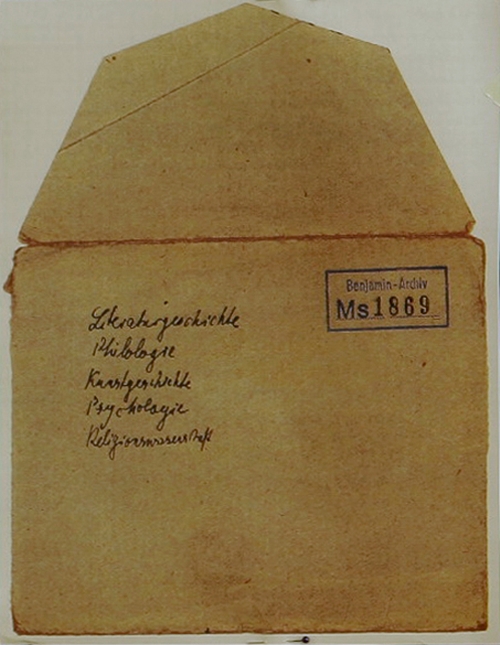 Benjamin-Archiv
Ms 1869
Literaturgeschichte
Philologie
Kunstgeschichte
Psychologie
Religionswissenschaft